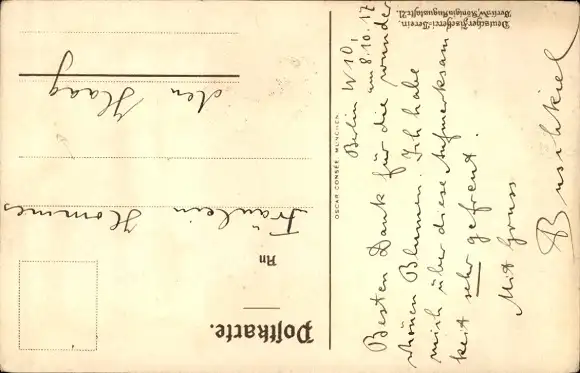 Postkarte.
An
Fräulein
Hommes
den Haag
Deutscher Fischerei-Verein.
Berlin W, Königin Augustastr. 21.
OSCAR CONSÉE, MÜNCHEN.
Berlin W 10,
am 8.10.17
Besten Dank für die wunder
schönen Blumen. Ich habe
mich über diese Aufmerksam
keit sehr gefreut.
Mit Gruss